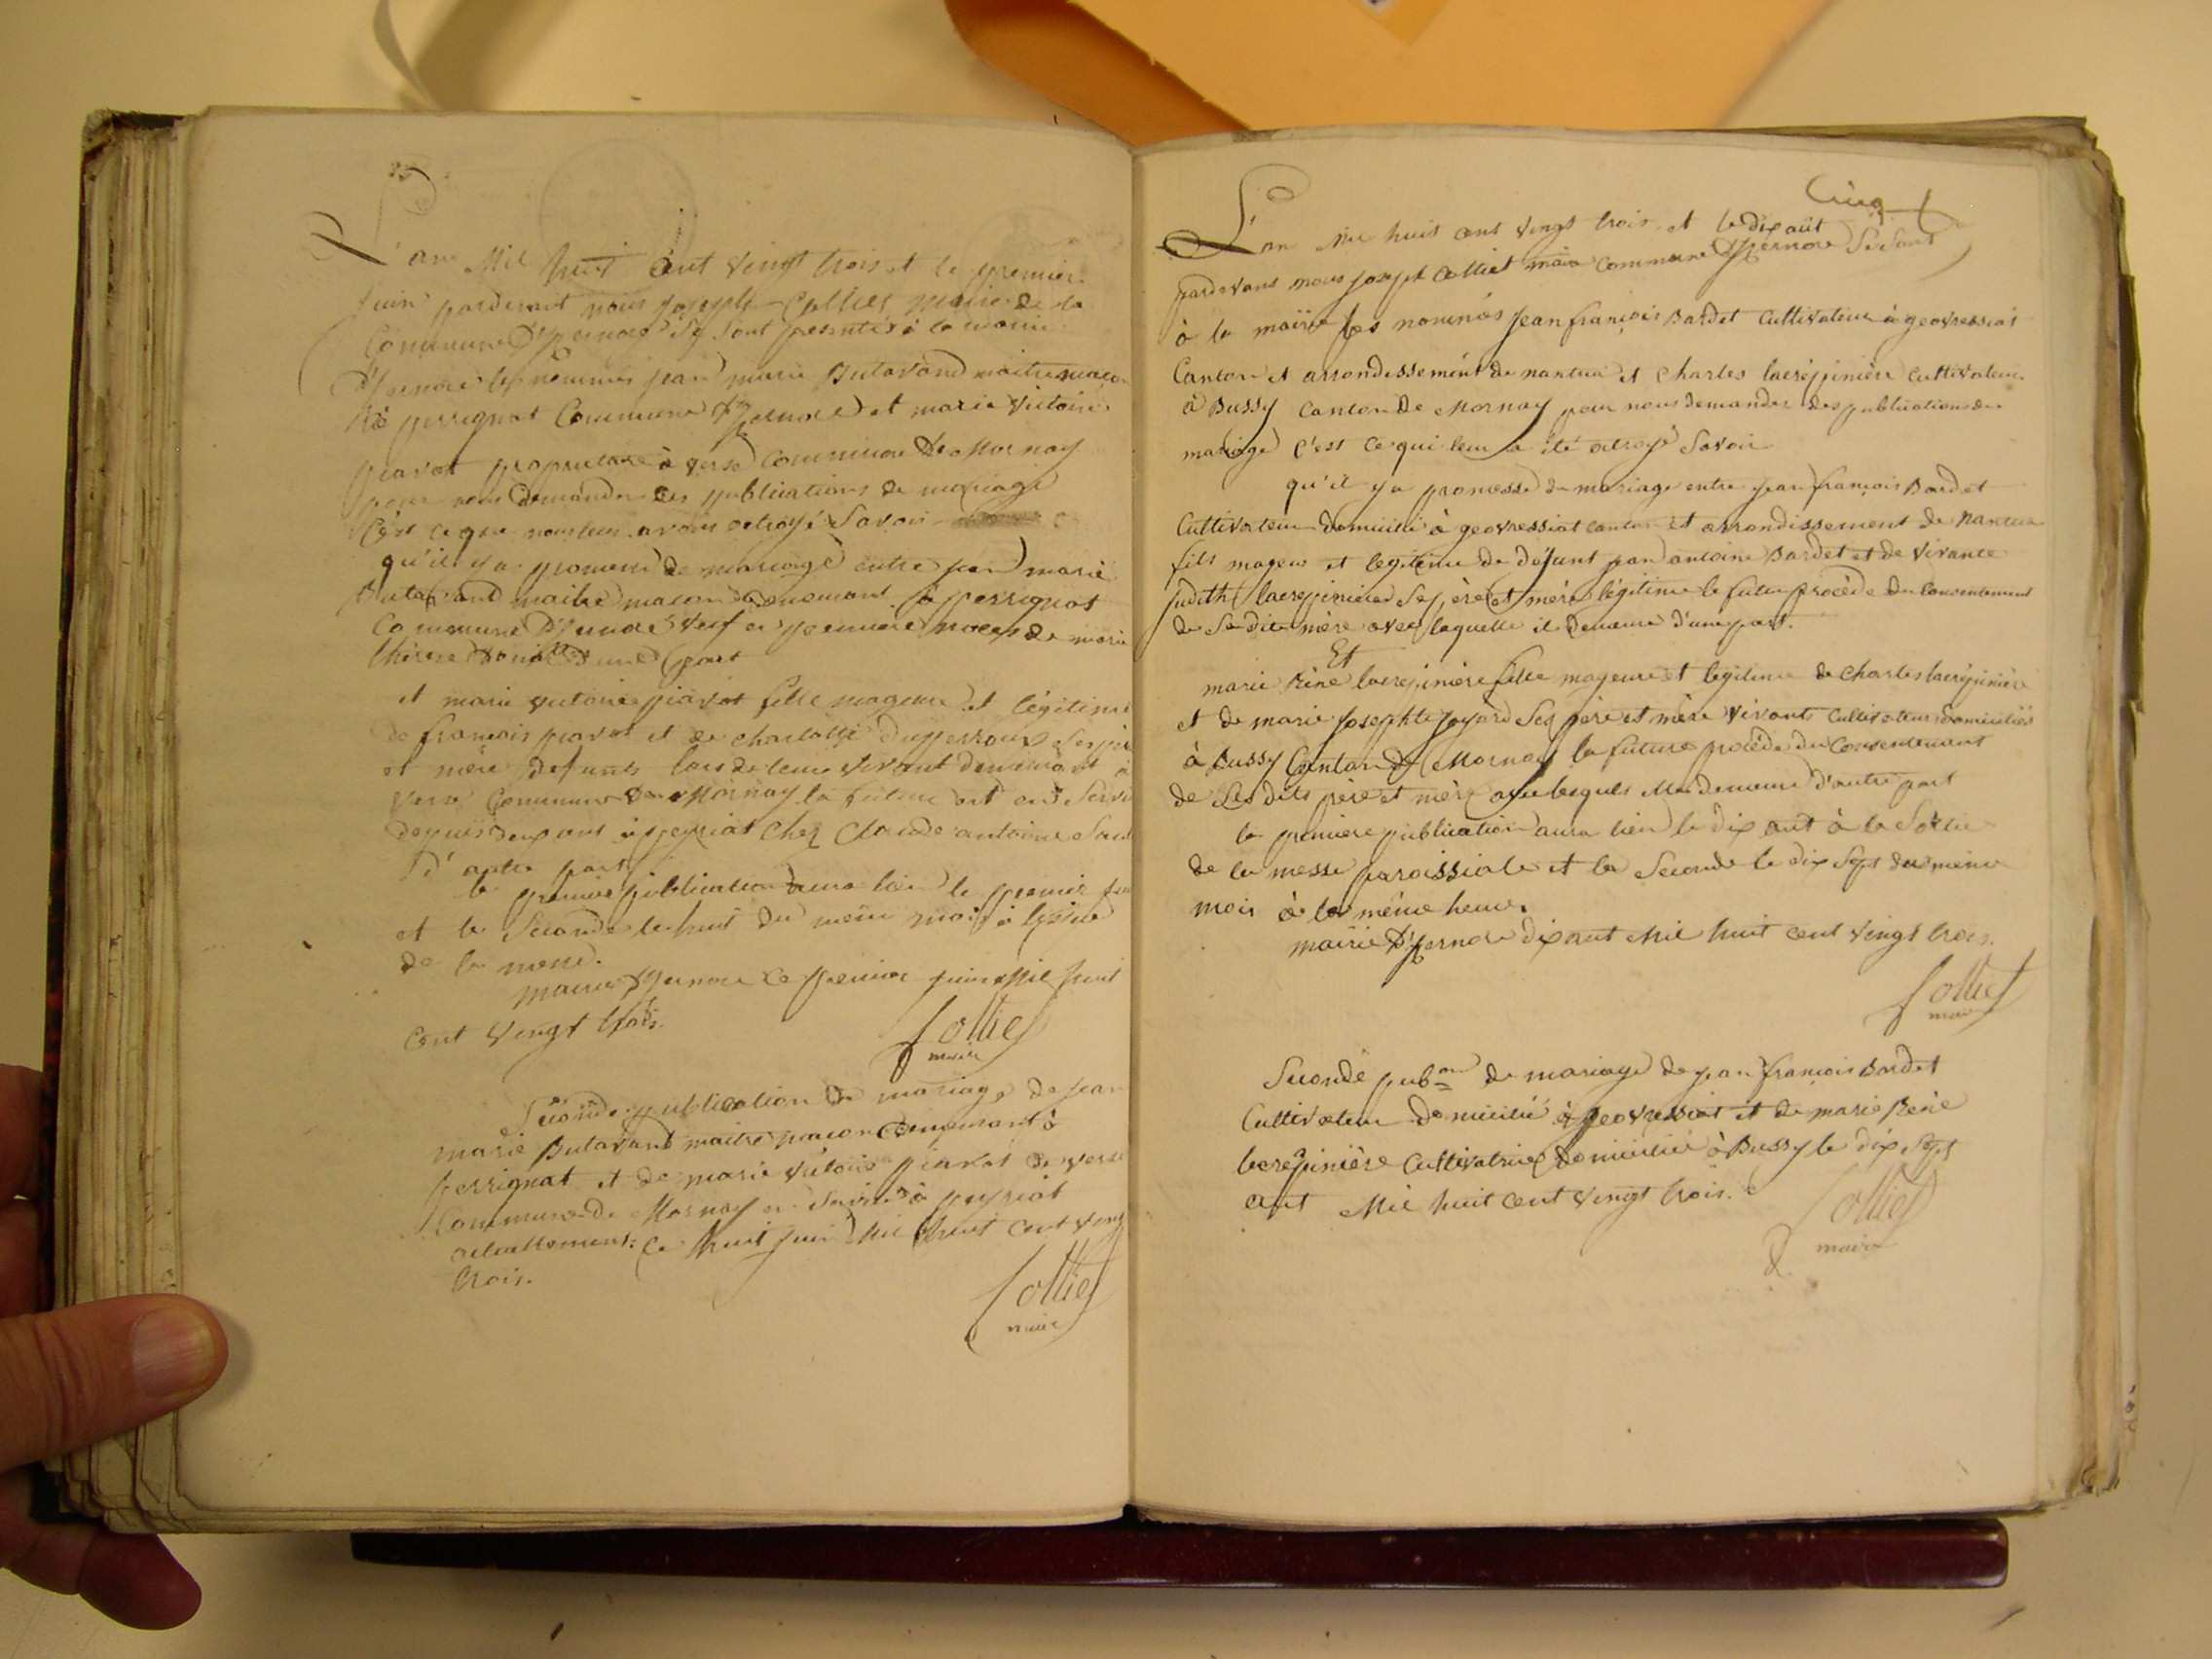 L'an Mil huit cent vingt trois et le premier
juin pardevant nous joseph Colliet maire de la
Commune D'yzernore Se Sont presentés à la mairie
D'yzernore les nommés jean marie Butavand maitre macon
à perrignat Commune D'yzernore et marie victoire
piavot propriétaire à verse Commune De Mornay
pour nous Demander des publications de mariage
C'est ce que nous leur avons octroyé Savoir
qu'il y a promesse de mariage entre jean marie
Butavand maitre macon demeurant à perrignat
Commune D'yzernore veuf en premiere noces de marie
thérese d'une part
et marie victoire piavot fille mageure et légitime
de françois piavot et de charlotte Duperroux Ses père
et mère defunts lors de leur vivant demeurant à
verse Commune De Mornay la future est en Service
depuis deux ans à peyriat chez Claude antoine
D'autre part
la premiere publication aura lieu le premier juin
et la Seconde le huit du même mois à l'issue
de la messe.
mairie D'yzernore le premier juin Mil huit
Cent vingt trois.
Colliet
maire
Seconde publication de mariage de jean
marie Butavand maitre macon demeurant à
perrignat et de marie victoire piavot de verse
Commune de Mornay en Service à peyriat
actuellement. Ce huit juin Mil huit cent vingt
trois.
Colliet
maire
Cinq
L'an Mil huit cent vingt trois et le dix aût
pardevant nous joseph Colliet maire commune D'yzernore Se Sont
à la mairie les nommés jean françois Bardet Cultivateur à geovressiat
Canton et arrondissement de nantua et Charles lacrépinière cultivateur
à Bussy canton de Mornay pour nous demander des publications de
mariage c'est ce qui leur a été octroyé Savoir
qu'il y a promesse de mariage entre jean françois Bardet
Cultivateur domicilié à geovressiat canton et arrondissement de nantua
fils mageur et legitime de defunt jean antoine Bardet et de vivante
judith lacrepinière Ses père et mère légitime le futur procède du consentement
de Sa dite mère avec laquelle il demeure d'une part.
Et
marie Réné lacrepinière fille mageure et legitime de Charles lacrépinière
et de marie josephte joyard Ses père et mère vivants cultivateurs domiciliés
à Bussy Canton de Mornay la future procède du Consentement
de Ses dits père et mère avec lesquels Elle demeure d'autre part
la première publication aura lieu le dix aut à la Sortie
de la messe paroissiale et la Seconde le dix Sept du même
mois à la même heure.
mairie D'yzernore dix aut Mil huit cent vingt trois.
Colliet
maire
Seconde pubon de mariage de jean françois Bardet
Cultivateur domicilié à geovressiat et de marie Réné
lacrepinière Cultivatrice domiciliée à Bussy le dix Sept
aut Mil huit cent vingt trois.
Colliet
maire